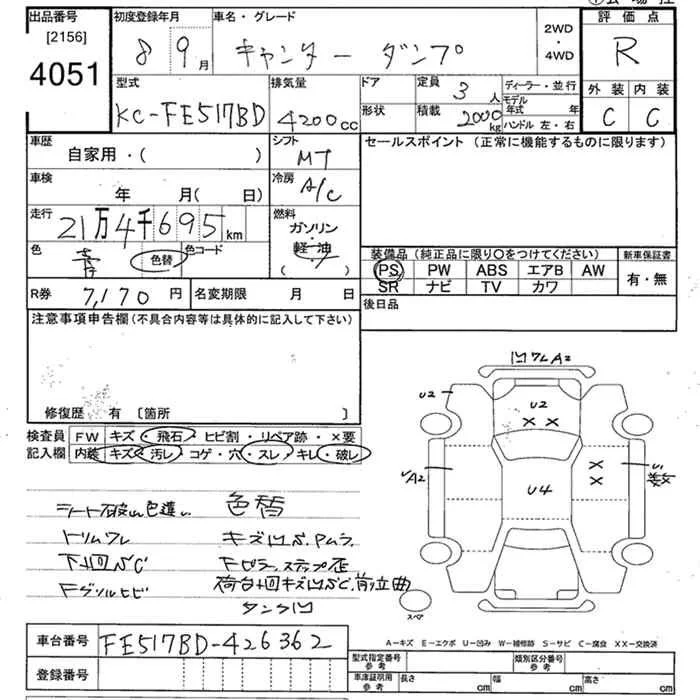 出品番号
[2156]
4051
初度登録年月
8 9月
車名・グレード
キャンター ダンプ
2WD
・
4WD
評価点
R
型式
KC-FE517BD
排気量
4200cc
ドア
形状
定員
3人
積載
2000kg
ディーラー・並行
モデル年式 年
ハンドル 左・右
外装 内装
C C
車歴
自家用・( )
シフト
MT
セールスポイント (正常に機能するものに限ります)
車検
年 月( 日)
冷房
A/C
走行
21万4千695km
燃料
ガソリン
軽・油
( )
色
青
色替
色コード
装備品 (純正品に限り○をつけてください)
PS PW ABS エアB AW
SR ナビ TV カワ
新車保証書
有・無
R券
7,170円
名変期限 月 日
後日品
注意事項申告欄(不具合内容等は具体的に記入して下さい)
修復歴 有 [箇所 ]
検査員
記入欄
FW キズ・飛石・ヒビ割・リペア跡・×要
内装 キズ・汚レ・コゲ・穴・スレ・キレ・破レ
シート破れ色違い
トリムワレ
下回りSC
Fグリルヒビ
色替
キズ凹S、Pムラ
Fピラー、ステップ歪
タンク凹
凹ワレA2
U2
U2
× ×
A2
U4
×
×
U1
スペア
A-キズ E-エクボ U-凹み W-補修跡 S-サビ C-腐食 XX-交換済
車台番号
FE517BD-426362
登録番号
型式指定番号
参考
類別区分番号
参考
車庫証明用
参考
長さ cm 幅 cm 高さ cm